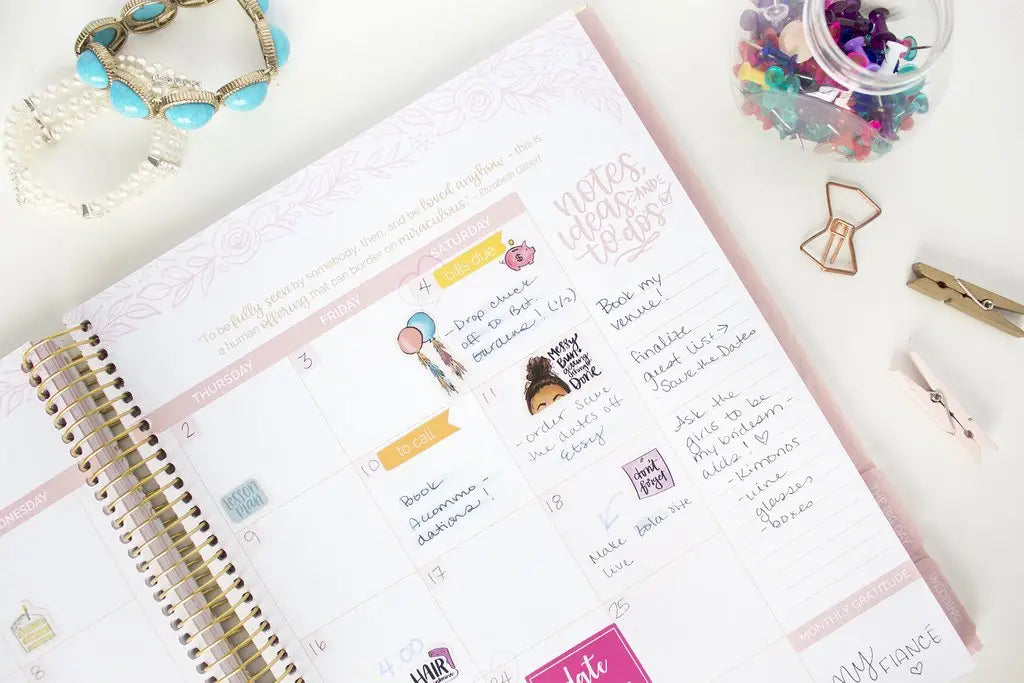 "To be fully seen by somebody, then, and be loved anyhow - this is
a human offering that can border on miraculous." - Elizabeth Gilbert
THURSDAY
FRIDAY
SATURDAY
2
3
4
bills due
- Drop check
off to Bot.
Gardens! (1/2)
lesson
plan
9
10
to call
Book
Accommo-
dations!
11
MESSY
Bun?
getting
Done
-order save
the dates off
Etsy
16
4:00
HAIR
17
18
don't
forget
Make
live
24
25
date
8
notes,
ideas, AND
to-dos
Book my
venue!
Finalize
guest list →
Save the Dates
Ask the
girls to be
my bridesm-
aids! ♡
- Kimonos
- wine
glasses
- boxes
MONTHLY GRATITUDE
My FIANCÉ
♡
THE BIG DAY
WEDDING